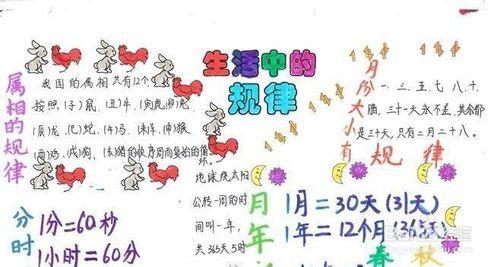 生活中的
规律
属相的规律
我国的属相共有12个,
按照,(子)鼠,(丑)牛,(寅)虎,(卯)兔
(辰)龙,(巳)蛇,(午)马,(未)羊,(申)猴
(酉)鸡,(戌)狗,(亥)猪的次序周而复始的循
环。
地球绕太阳
公转一周的时
间叫一年,
共365天5时
月份大小有规律
一、三、五、七、八、十、
腊,三十一天永不差,其余都
是三十天,只有二月二十八。
分时
1分=60秒
1小时=60分
月年
1月=30天(31天)
1年=12个月(365天)
春 秋